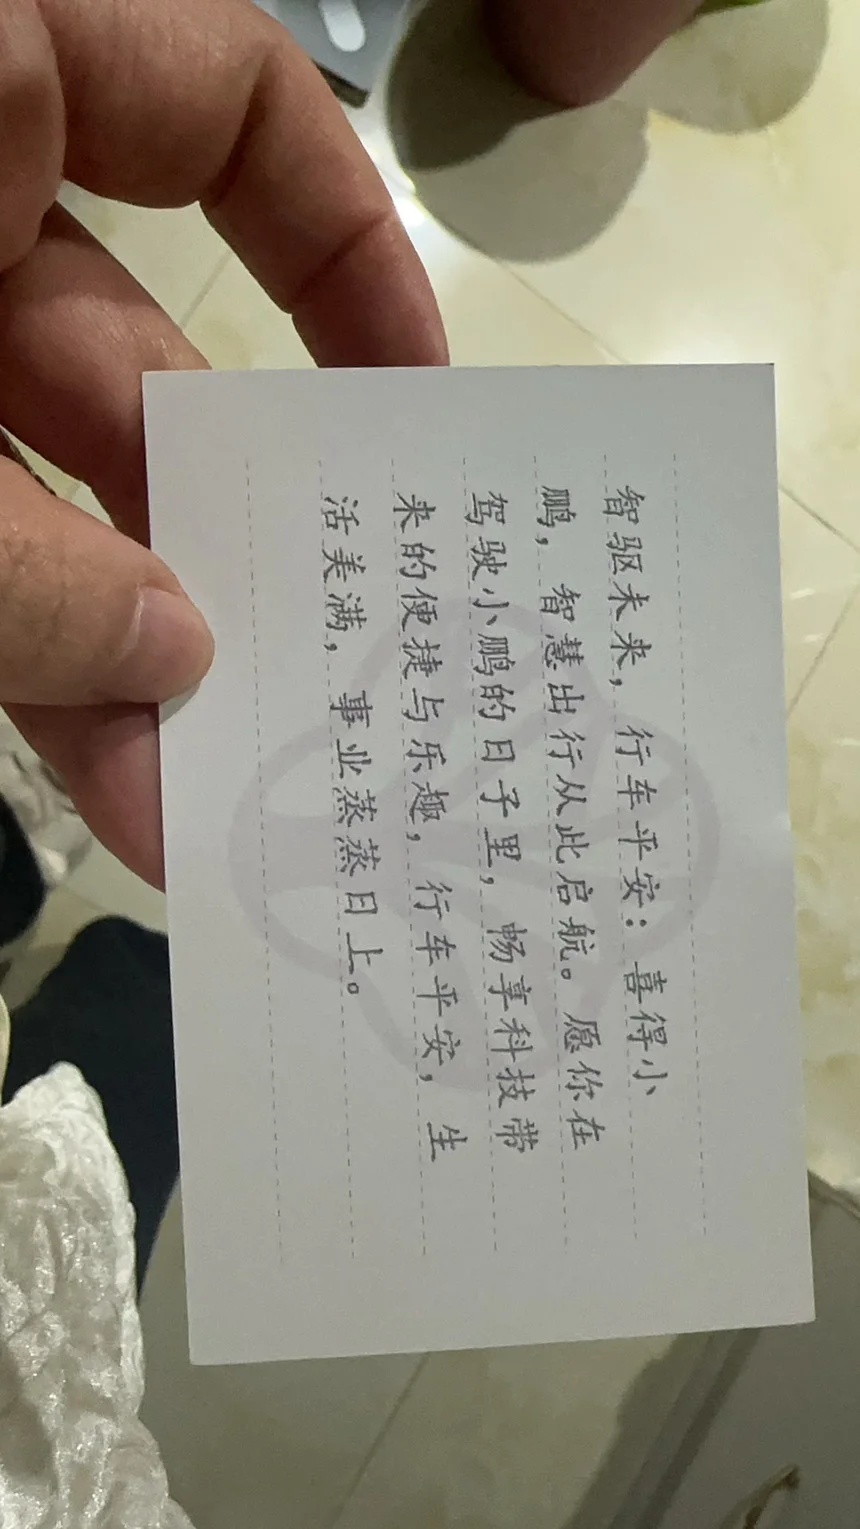 智驱未来，行车平安：喜得小
鹏，智慧出行从此启航。愿你在
驾驶小鹏的日子里，畅享科技带
来的便捷与乐趣，行车平安，生
活美满，事业蒸蒸日上。